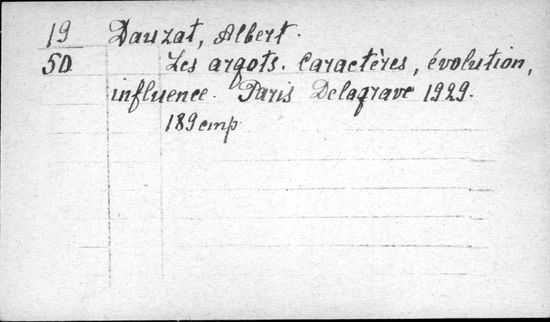 19
50
Dauzat, Albert.
Les argots. Caractères, évolution,
influence. Paris Delagrave 1929.
189 стр